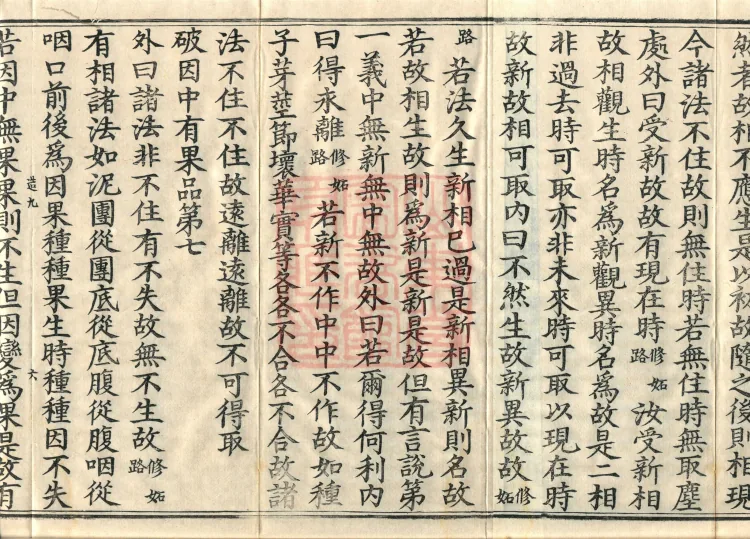 然者故相不應生是以初故隨之後則相現
今諸法不住故則無住時若無住時無取塵
處外曰受新故故有現在時修妬路汝受新相
故相觀生時名為新觀異時名為故是二相
非過去時可取亦非未來時可取以現在時
故新故相可取內曰不然生故新異故故修妬
路若法久生新相已過是新相異新則名故
若故相生故則為新是新是故但有言說第
一義中無新無中無故外曰若爾得何利內
曰得永離修妬路若新不作中中不作故如種
子芽莖節壞華實等各各不合各不合故諸
法不住不住故遠離遠離故不可得取
破因中有果品第七
外曰諸法非不住有不失故無不生故修妬路
有相諸法如泥團從團底從底腹從腹咽從
咽口前後為因果種種果生時種種因不失
造九
六
若因中無果果則不生但因變為果是故有